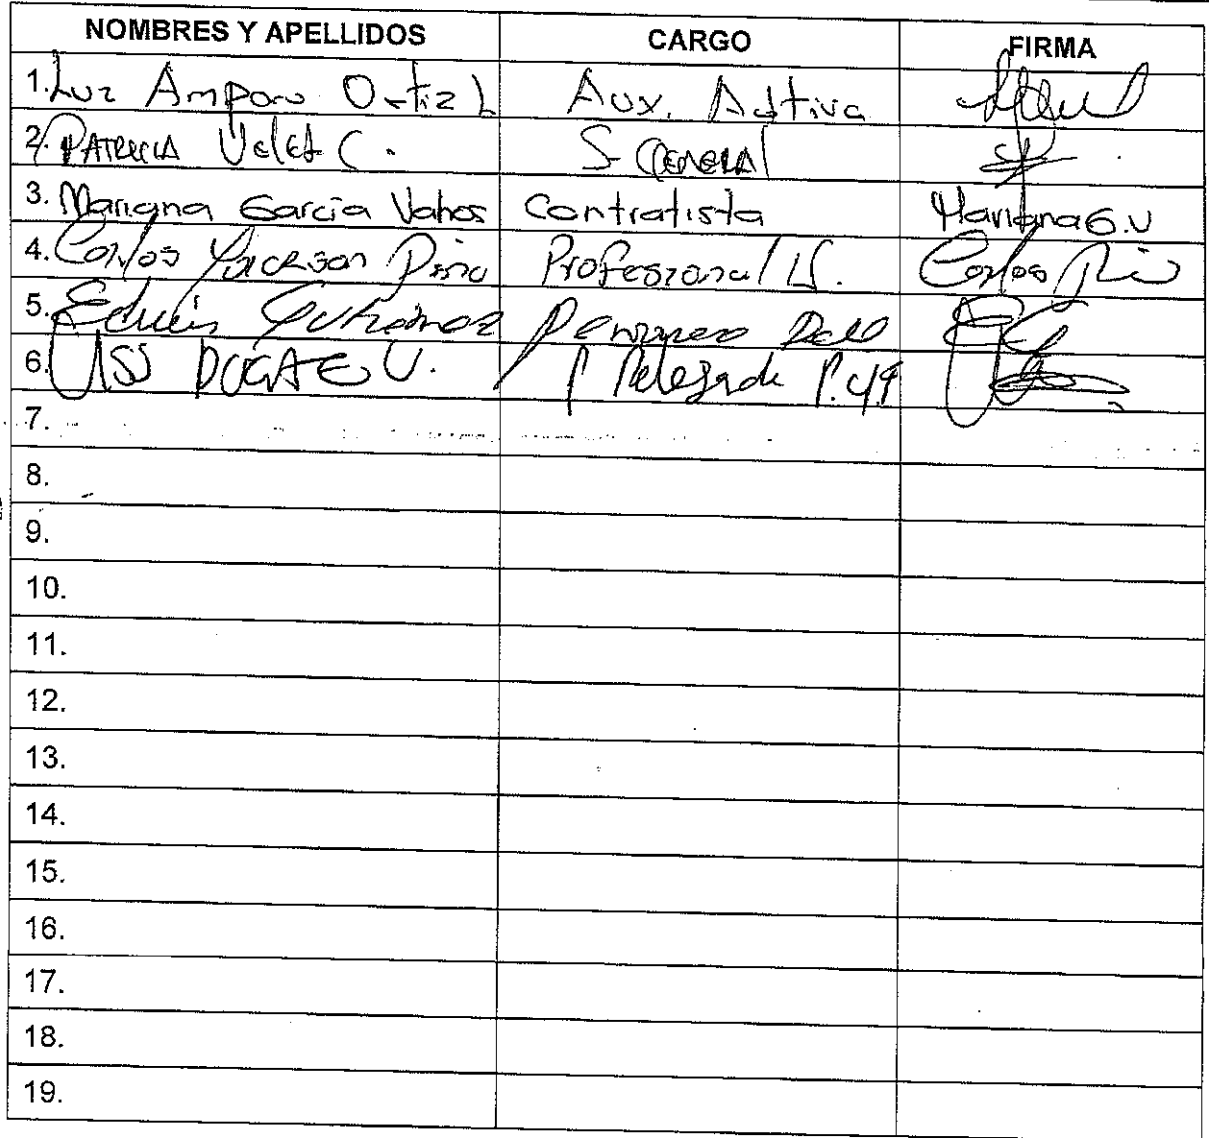 NOMBRES Y APELLIDOS CARGO FIRMA
1. Luz Amparo Ortiz L Aux. Adtiva
2. PATRICIA Velez C. S. GENERAL
3. Mariana Garcia Vahos Contratista Mariana G.V
4. Carlos Pino Profesional U. Carlos
5. Edwin Gutierrez
6. U. Delegada
7.
8.
9.
10.
11.
12.
13.
14.
15.
16.
17.
18.
19.